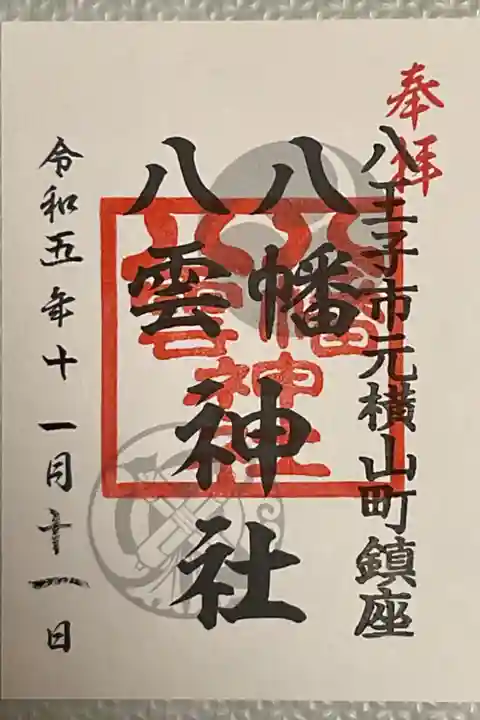 奉拝
八王子市元横山町鎮座
八幡
八雲
神社
八幡
八雲
神社
令和五年十一月十一日